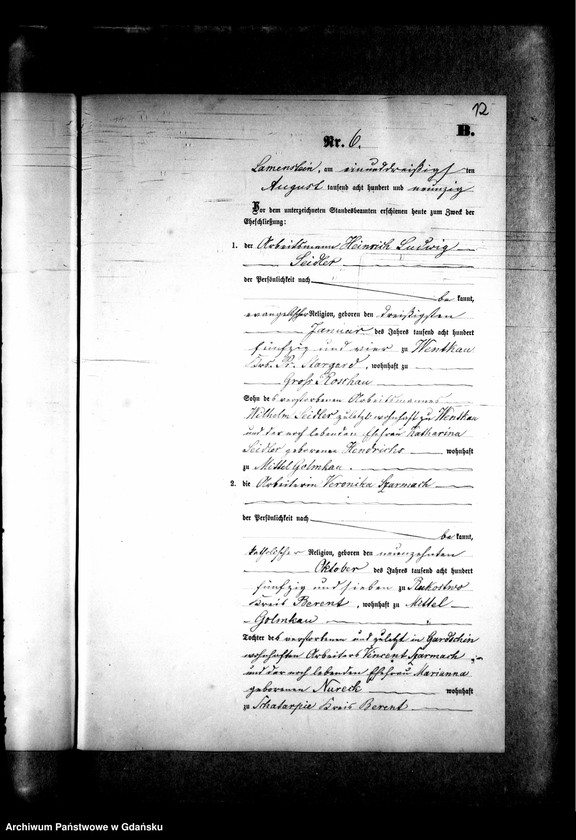 12
B.
Nr. 6.
Lamenstein, am einunddreißigsten
August tausend acht hundert und neunzig
Vor dem unterzeichneten Standesbeamten erschienen heute zum Zweck der
Eheschließung:
1. der Arbeitsmann Heinrich Ludwig
Seidler
der Persönlichkeit nach
be kannt,
evangelischer Religion, geboren den dreißigsten
Januar des Jahres tausend acht hundert
fünfzig und vier zu Wentkau
Krs. Pr. Stargard, wohnhaft zu
Groß Roschau
Sohn des verstorbenen Arbeitsmannes
Wilhelm Seidler zuletzt wohnhaft zu Wentkau
und der noch lebenden Ehefrau Katharina
Seidler geborenen Hendrichs wohnhaft
zu Mittel Golmkau.
2. die Arbeiterin Veronika Szarmach
der Persönlichkeit nach
be kannt,
katholischer Religion, geboren den neunzehnten
Oktober des Jahres tausend acht hundert
fünfzig und sieben zu
Kreis Berent, wohnhaft zu Mittel
Golmkau
Tochter des verstorbenen und zuletzt in Gardschin
wohnhaften Arbeiters Vincent Szarmach
und der noch lebenden Ehefrau Marianna
geborenen Nureck wohnhaft
zu Schatarpie Kreis Berent
Archiwum Państwowe w Gdańsku